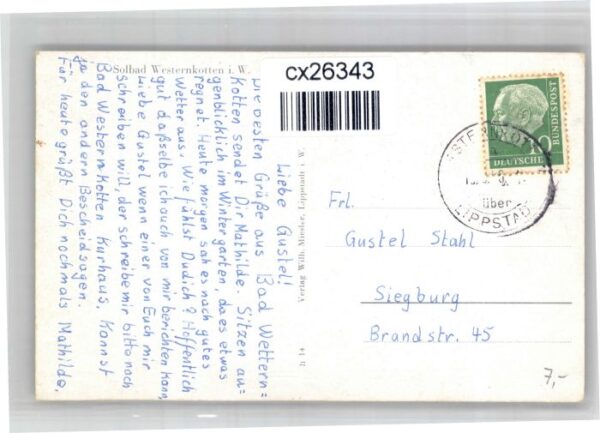 Solbad Westernkotten i. W.
cx26343
Liebe Gustel!
Die besten Grüße aus Bad Western=
Kotten sendet Dir Mathilde. Sitzen au=
genblicklich im Wintergarten, da es etwas
regnet. Heute morgen sah es nach gutes
Wetter aus. Wie fühlst Du dich? Hoffentlich
gut daßelbe ich auch von mir berichten kann,
Liebe Gustel, wenn einer von Euch mir
schreiben will, der schreibe mir bitte noch
Bad Westernkotten Kurhaus, Kannst
ja den andern Bescheid sagen.
Für heute grüßt Dich nochmals Mathilde.
Verlag Wilh. Münster, Lippstadt i. W.
h 14
DEUTSCHE
BUNDESPOST
über
LIPPSTADT
Frl.
Gustel Stahl
Siegburg
Brandstr. 45
7,-